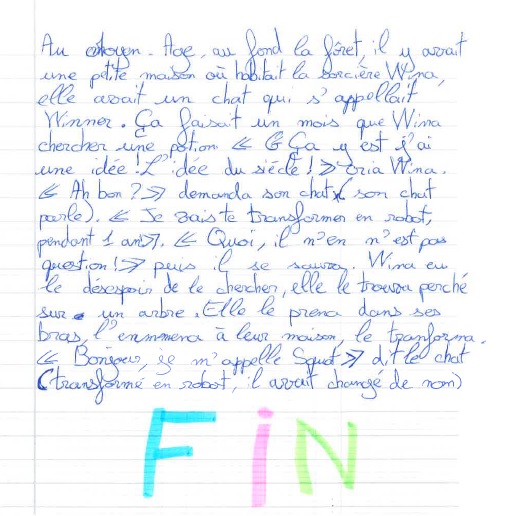 Au moyen-Age, au fond la fôret, il y avait
une petite maison où habitait la sorcière Wina,
elle avait un chat qui s'appellait
Winner. Ça faisait un mois que Wina
chercher une potion. « Ça y est j'ai
une idée ! L'idée du siécle ! » cria Wina.
« Ah bon ? » demanda son chat ( son chat
parle). « Je vais te transformer en robot,
pendant 1 an ». « Quoi, il n'en n'est pas
question ! » puis il se sauva. Wina eu
le désespoir de le chercher, elle le trouva perché
sur un arbre. Elle le prena dans ses
bras, l'emmena à leur maison, le tranforma.
« Bonjour, je m'appelle Squot » dit le chat
(transformé en robot, il avait changé de nom)
FIN